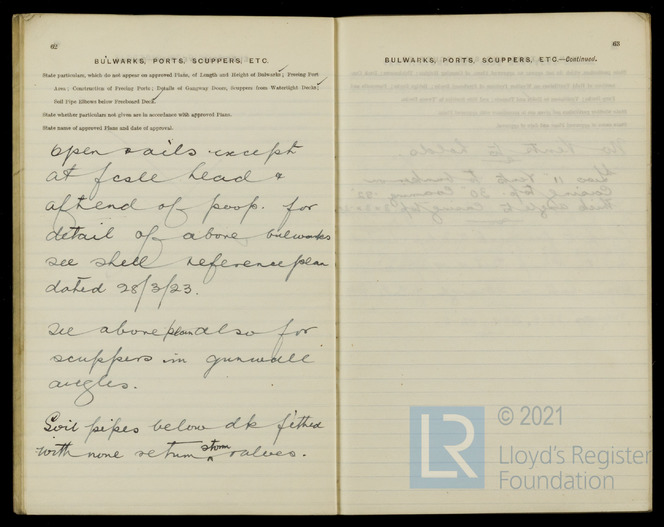 62
BULWARKS, PORTS, SCUPPERS, ETC.
State particulars, which do not appear on approved Plans, of Length and Height of Bulwarks; Freeing Port
Area; Construction of Freeing Ports; Details of Gangway Doors, Scuppers from Watertight Decks;
Soil Pipe Elbows below Freeboard Deck.
State whether particulars not given are in accordance with approved Plans.
State name of approved Plans and date of approval.
open rails except
at fcsle head &
aft end of poop. for
detail of above bulwarks
see shell reference plan
dated 28/3/23.
see above plan also for
scuppers in gunwale
angles.
Soil pipes below dk fitted
with none return storm valves.
63
BULWARKS, PORTS, SCUPPERS, ETC.—Continued.
LR
© 2021
Lloyd's Register
Foundation